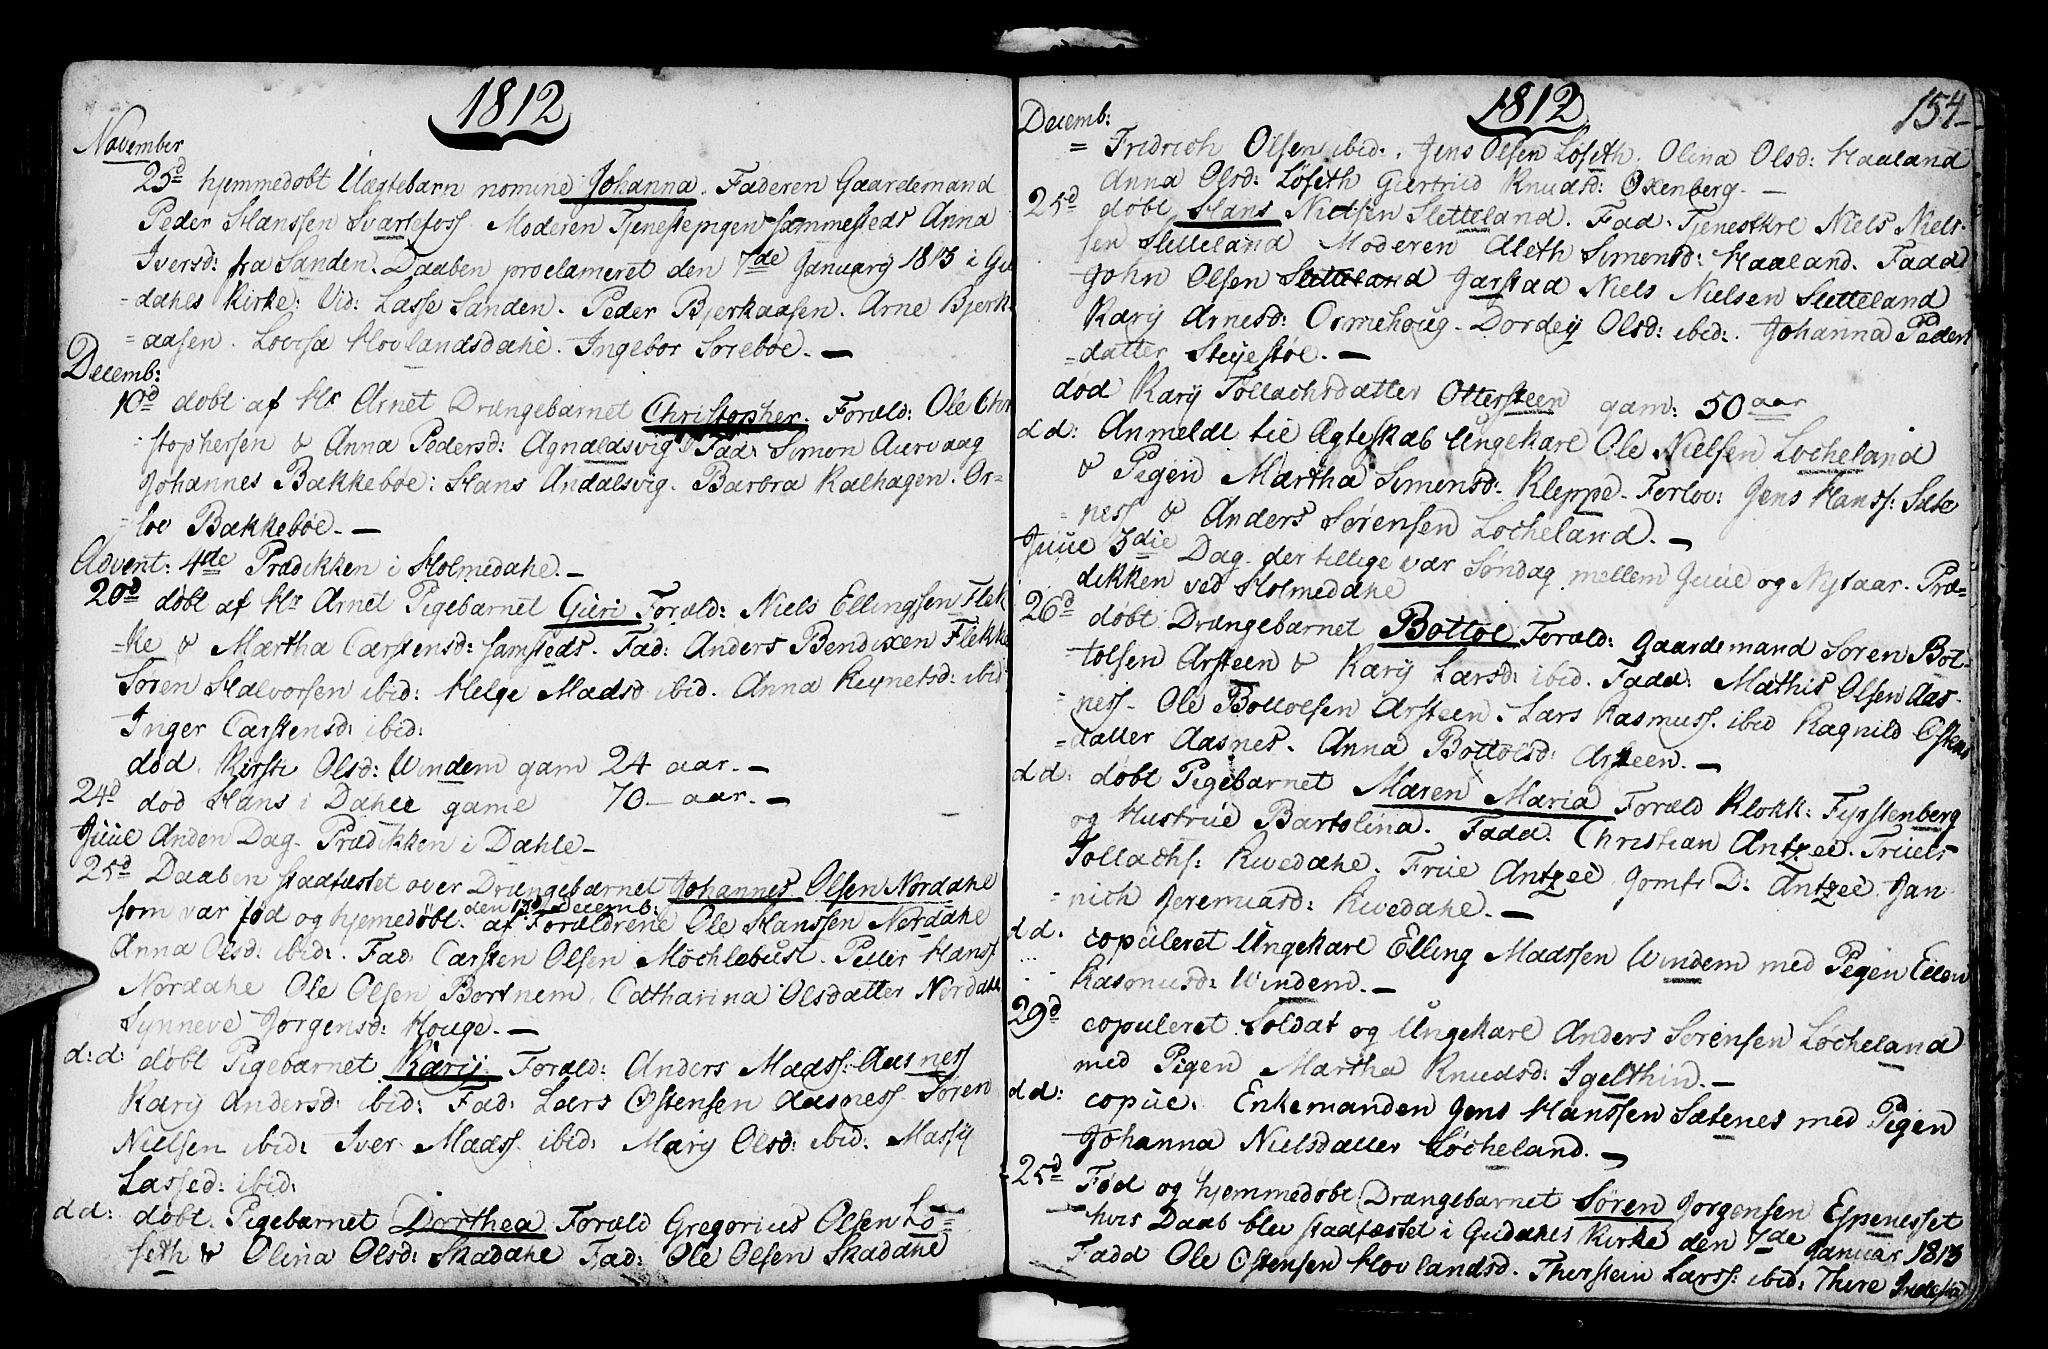 1812
November
25d hjemmedøbt Uægtebarn nomine Johanna. Faderen Gaardemand
Peder Hanssen Svartefoss Moderen Tjenestepigen sammesteds Anna
Iversd: fra Sanden. Daaben proclameret den 7de Januarij 1813 i Gu-
=dahls Kirke: Vid: Lasse Sanden. Peder Bjerkaasen. Arne Bjerk-
=aasen. Lovisa Hovlandsdahl. Ingebor Sørebøe.
Decemb:
døbt af Hr Arnet Drængebarnet Christopher. Foræld: Ole Chri
stophersen & Anna Pedersd: Agnaldsvig Fad: Simon Aurvaag
Johannes Bakkebøe: Hans Andalsvig. Barbra Kalhagen. Or-
=lov Bakkebøe.
Advent: 4de Prædikken i Holmedahl.
20d døbt af Hr Arnet Pigebarnet Guri Foræld: Niels Ellingsen Flek
=ke & Martha Carstensd: samsteds. Fad: Anders Bendixen Flekke
Søren Halvorsen ibid: Helge Madsd ibid. Anna Reynetsd: ibid
Inger Carstensd: ibid:
død. Kirsti Olsd: Windem gam 24 aar.
24d død Hans i Dahle gamel 70 aar.
Juul Anden Dag. Prædikken i Dahle
25d Daaben stadfæstet over Drængebarnet Johannes Olsen Nordahl
den 17d Decemb:
som var fød og hjemedøbt. af Forældrene Ole Hanssen Nordahl
Anna Olsd: ibid:. Fad: Carsten Olsen Mochlebust. Peder Hanss
Nordahl Ole Olsen Bortnem, Catharina Olsdatter Nordahl
Synneve Jørgensd: Houge.
d:d: døbt Pigebarnet Karij Foræld: Anders Madss: Aasness
Karij Andersd: ibid: Fad: Lars Østensen Aasness Søren
Nielsen ibid: Iver Madss. ibid: Marij Olsd: ibid: Massij
Lassed: ibid:
d d: døbt Pigebarnet Dorthea Foræld Gregorius Olsen Lø=
seth & Olina Olsd: Skadahl Fad: Ole Olsen Skadahl
1812
154
Decemb:
= Fridrich Olsen ibid:. Jens Olsen Løseth. Olina Olsd: Haaland
Anna Olsd: Løseth Giertrud Knudsd: Oxenberg.
25d døbt Hans Nielsen Sletteland. Fad. Tjenestkrl Niels Niel-
sen Sletteland Moderen Aleth Simonsd: Haaland. Fadd
John Olsen Sletteland Jarstad Niels Nielsen Sletteland
Karij Arnesd: Ormehoug. Dordeij Olsd: ibid:. Johanna Peders
=datter Steyestøl.
død Karij Tollachsdatter Ottersteen gam: 50 aar
d d: Anmeldt til Ægteskab Ungekarl Ole Nielsen Locheland
& Pigen Martha Simonsd: Kleppe. Forlov: Jens Hanss: Sæte
=ness & Anders Sørensen Locheland.
Juul 3die Dag. der tillige var Søndag mellem Juul og Nytaar. Præ=
dikken ved Holmedahl
26d døbt Drængebarnet Bottol Foræld: Gaardemand Søren Bot-
tolsen Arsteen & Karij Larsd: ibid. Fadd: Mathis Olsen Aas-
=ness. Ole Bottolsen Arsteen. Lars Rasmuss. ibid Ragnild Østens
=datter Aasnes. Anna Bottolsd: Arsteen.
d d: døbt Pigebarnet Maren Maria Foræld Klokk: Fyrstenberg
og Hustrue Bartolina. Fadd. Christian Antzee. Truels
Tollachs: Kvedahl. Frue Antzee Jomfr D: Antzee. Jan
=nich Jeremiasd: Kvedahl.
d d. copuleret Ungekarl Elling Madssen Windem med Pigen Ellen
Rasmusd: Windem.
29d copuleret Soldat og Ungekarl Anders Sørensen Løcheland
med Pigen Martha Knudsd: Igelthin.
d d: copul. Enkemanden Jens Hanssen Sætenes med Pigen
Johanna Nielsdatter Løcheland.
25d Fød og hjemmedøbt Drængebarnet Søren Jørgensen Espenesset
hvis Daab blev stadfæstet i Gudahls Kirke den 7de Januar 1813
Fadd Ole Østensen Hovlandsd. Thorstein Larss: ibid: There